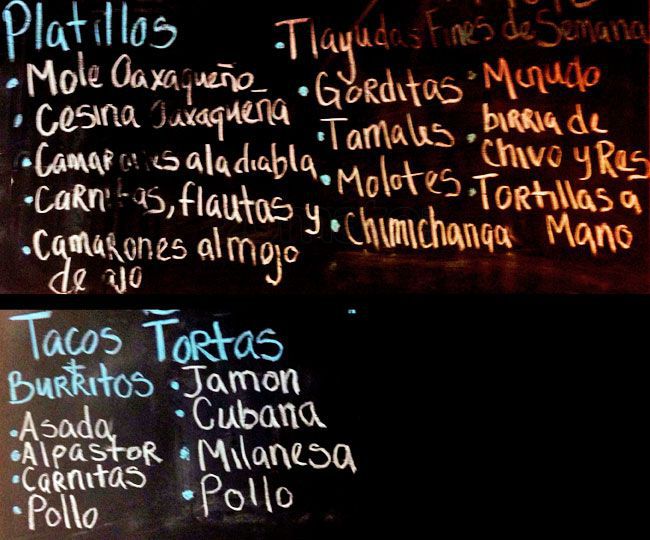 Platillos
• Mole Oaxaqueño
• Cesina Oaxaqueña
• Camarones a la diabla
• Carnitas, flautas y
• Camarones al mojo
de ajo
• Tlayudas
• Gorditas
• Tamales
• Molotes
• Chimichanga
Fines de Semana
• Menudo
• birria de
chivo y Res
• Tortillas a
Mano
Tacos
+
Burritos
• Asada
• Alpastor
• Carnitas
• Pollo
Tortas
• Jamon
• Cubana
• Milanesa
• Pollo